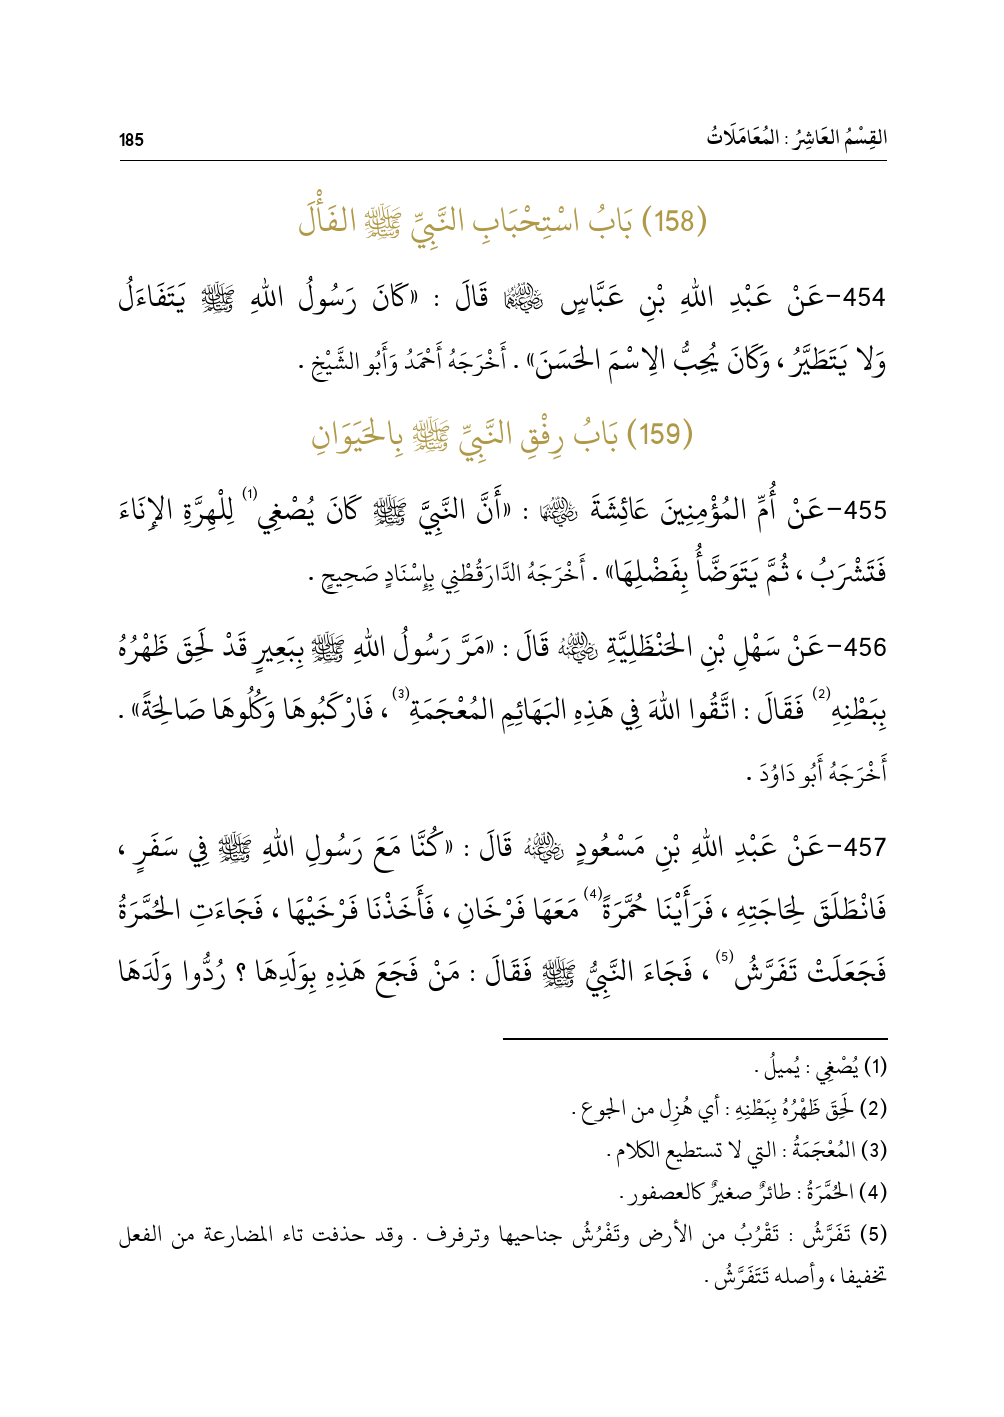 القِسْمُ العَاشِرُ : المُعَامَلَاتُ 185
(158) بَابُ اسْتِحْبَابِ النَّبِيِّ ﷺ الفَأْلَ
454-عَنْ عَبْدِ اللهِ بْنِ عَبَّاسٍ رضي الله عنهما قَالَ : «كَانَ رَسُولُ اللهِ ﷺ يَتَفَاءَلُ
وَلا يَتَطَيَّرُ ، وَكَانَ يُحِبُّ الِاسْمَ الحَسَنَ» . أَخْرَجَهُ أَحْمَدُ وَأَبُو الشَّيْخِ .
(159) بَابُ رِفْقِ النَّبِيِّ ﷺ بِالحَيَوَانِ
455-عَنْ أُمِّ المُؤْمِنِينَ عَائِشَةَ رضي الله عنها : «أَنَّ النَّبِيَّ ﷺ كَانَ يُصْغِي(1) لِلْهِرَّةِ الإِنَاءَ
فَتَشْرَبُ ، ثُمَّ يَتَوَضَّأُ بِفَضْلِهَا» . أَخْرَجَهُ الدَّارَقُطْنِي بِإِسْنَادٍ صَحِيحٍ .
456-عَنْ سَهْلِ بْنِ الحَنْظَلِيَّةِ رضي الله عنه قَالَ : «مَرَّ رَسُولُ اللهِ ﷺ بِبَعِيرٍ قَدْ لَحِقَ ظَهْرُهُ
بِبَطْنِهِ(2) فَقَالَ : اتَّقُوا اللهَ فِي هَذِهِ البَهَائِمِ المُعْجَمَةِ(3) ، فَارْكَبُوهَا وَكُلُوهَا صَالِحَةً» .
أَخْرَجَهُ أَبُو دَاوُدَ .
457-عَنْ عَبْدِ اللهِ بْنِ مَسْعُودٍ رضي الله عنه قَالَ : «كُنَّا مَعَ رَسُولِ اللهِ ﷺ فِي سَفَرٍ ،
فَانْطَلَقَ لِحَاجَتِهِ ، فَرَأَيْنَا حُمَّرَةً(4) مَعَهَا فَرْخَانِ ، فَأَخَذْنَا فَرْخَيْهَا ، فَجَاءَتِ الحُمَّرَةُ
فَجَعَلَتْ تَفَرَّشُ(5) ، فَجَاءَ النَّبِيُّ ﷺ فَقَالَ : مَنْ فَجَعَ هَذِهِ بِوَلَدِهَا ؟ رُدُّوا وَلَدَهَا
(1) يُصْغِي : يُميلُ .
(2) لَحِقَ ظَهْرُهُ بِبَطْنِهِ : أي هُزِل من الجوع .
(3) المُعْجَمَةُ : التي لا تستطيع الكلام .
(4) الحُمَّرَةُ : طائرٌ صغيرٌ كالعصفور .
(5) تَفَرَّشُ : تَقْرُبُ من الأرض وتَفْرُشُ جناحيها وترفرف . وقد حذفت تاء المضارعة من الفعل
تخفيفا ، وأصله تَتَفَرَّشُ .